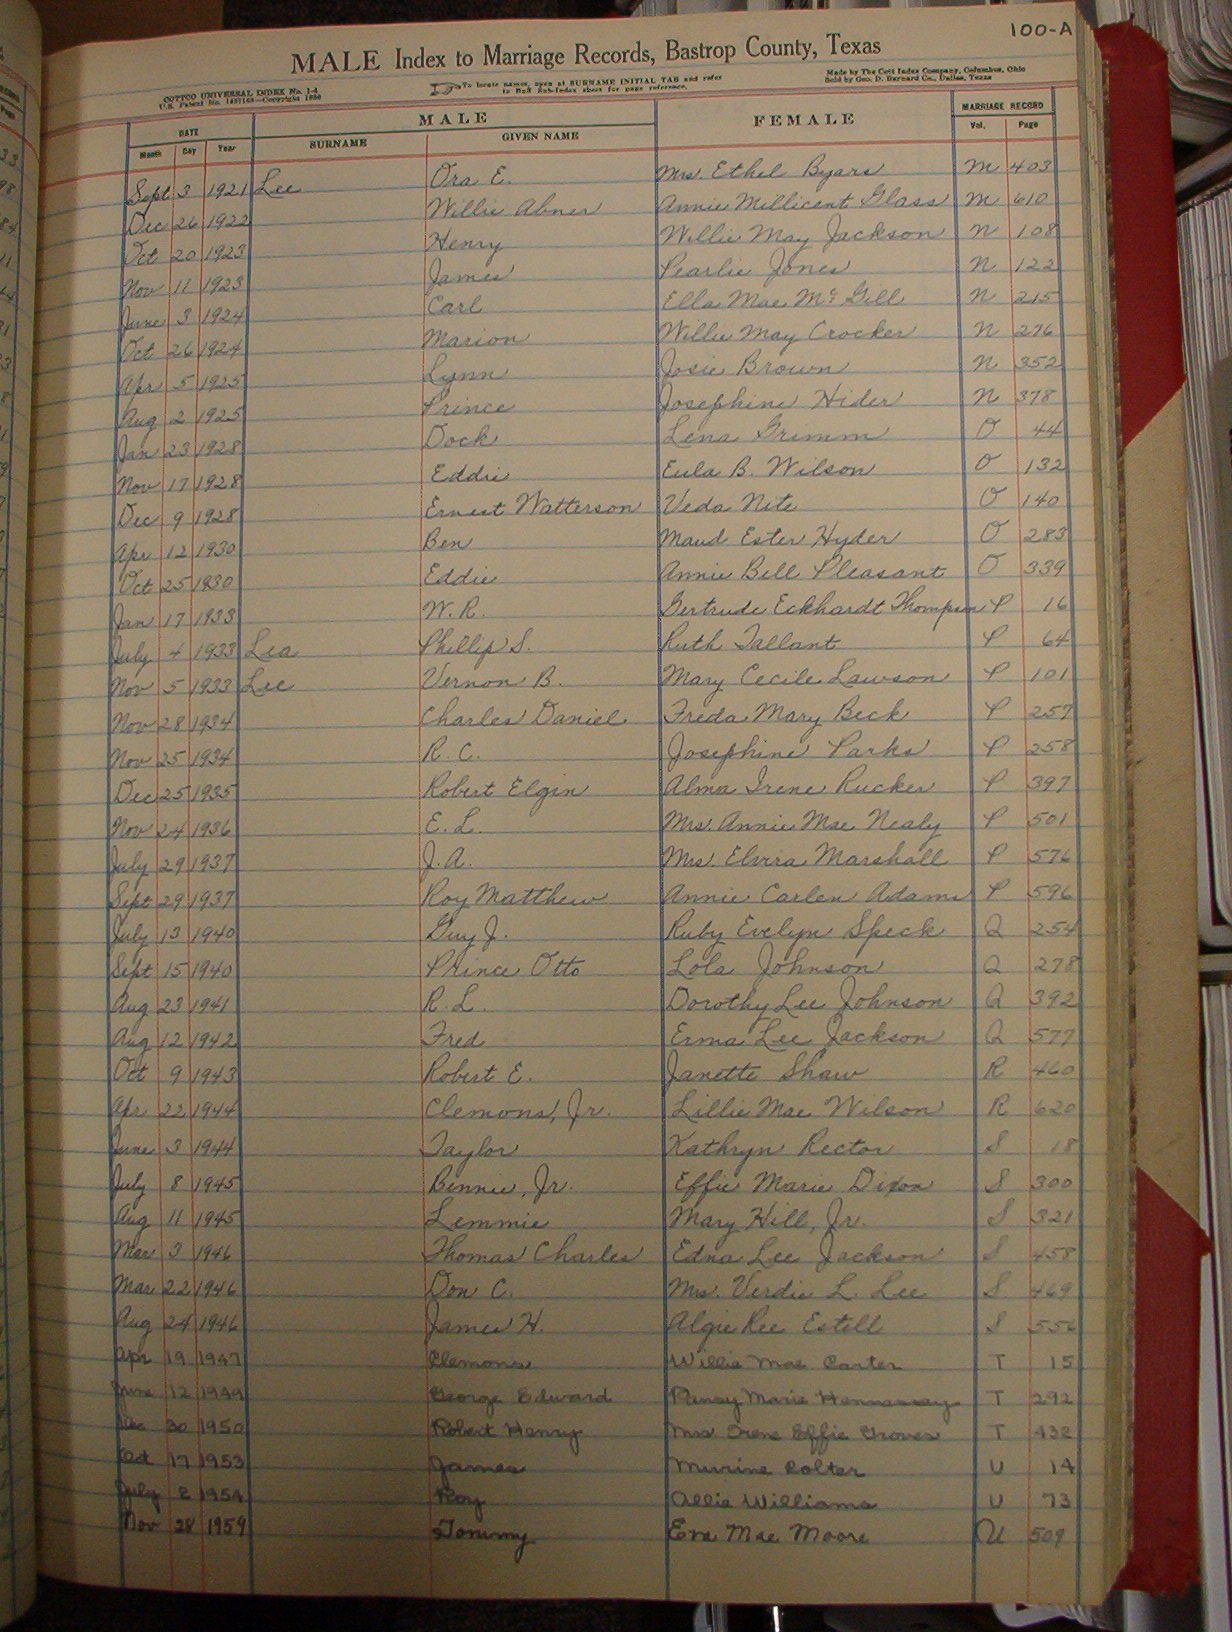 100-A
MALE Index to Marriage Records, Bastrop County, Texas
COTTCO UNIVERSAL INDEX No. 1-4
U.S. Patent No. Copyright
To locate names, open at SURNAME INITIAL TAB and refer
to Buff Sub-Index sheet for page reference.
Made by The Cott Index Company, Columbus, Ohio
Sold by Geo. D. Barnard Co., Dallas, Texas
DATE MALE FEMALE MARRIAGE RECORD
Month Day Year SURNAME GIVEN NAME Vol. Page
Sept 3 1921 Lee Ora E. Mrs. Ethel Byars M 403
Dec 26 1922 Willie Abner Annie Millicent Glass M 610
Oct 20 1923 Henry Willie May Jackson N 108
Nov 11 1923 James Pearlie Jones N 122
June 3 1924 Carl Ella Mae McGill N 215
Oct 26 1924 Marion Willie May Crocker N 276
Apr 5 1925 Lynn Josie Brown N 352
Aug 2 1925 Prince Josephine Hider N 378
Jan 23 1928 Dock Lena Grimm O 44
Nov 17 1928 Eddie Eula B. Wilson O 132
Dec 9 1928 Ernest Watterson Veda Nite O 140
Apr 12 1930 Ben Maud Ester Hyder O 283
Oct 25 1930 Eddie Annie Bell Pleasant O 339
Jan 17 1933 W. R. Gertrude Eckhardt Thompson P 16
July 4 1933 Lea Phillip S. Ruth Tallant P 64
Nov 5 1933 Lee Vernon B. Mary Cecile Lawson P 101
Nov 28 1934 Charles Daniel Freda Mary Beck P 257
Nov 25 1934 R. C. Josephine Parks P 258
Dec 25 1935 Robert Elgin Alma Irene Rucker P 397
Nov 24 1936 E. L. Mrs. Annie Mae Nealy P 501
July 29 1937 J. A. Mrs. Elvira Marshall P 576
Sept 29 1937 Roy Matthew Annie Carlen Adams P 596
July 13 1940 Guy J. Ruby Evelyn Speck Q 254
Sept 15 1940 Prince Otto Lola Johnson Q 278
Aug 23 1941 R. L. Dorothy Lee Johnson Q 392
Aug 12 1942 Fred Erma Lee Jackson Q 577
Oct 9 1943 Robert E. Janette Shaw R 460
Apr 22 1944 Clemons, Jr. Lillie Mae Wilson R 620
June 3 1944 Taylor Kathryn Rector S 18
July 8 1945 Bennie, Jr. Effie Marie Dixon S 300
Aug 11 1945 Lemmie Mary Hill, Jr. S 321
Mar 3 1946 Thomas Charles Edna Lee Jackson S 458
Mar 22 1946 Don C. Mrs. Verdie L. Lee S 469
Aug 24 1946 James H. Algie Ree Estell S 556
Apr 19 1947 Clemons Willie Mae Carter T 15
June 12 1949 George Edward Pansy Marie Hennessey T 292
Dec 30 1950 Robert Henry Mrs Orene Effie Groves T 432
Oct 17 1953 James Murine Colter U 14
July 2 1954 Roy Allie Williams U 73
Nov 28 1959 Tommy Eva Mae Moore U 509